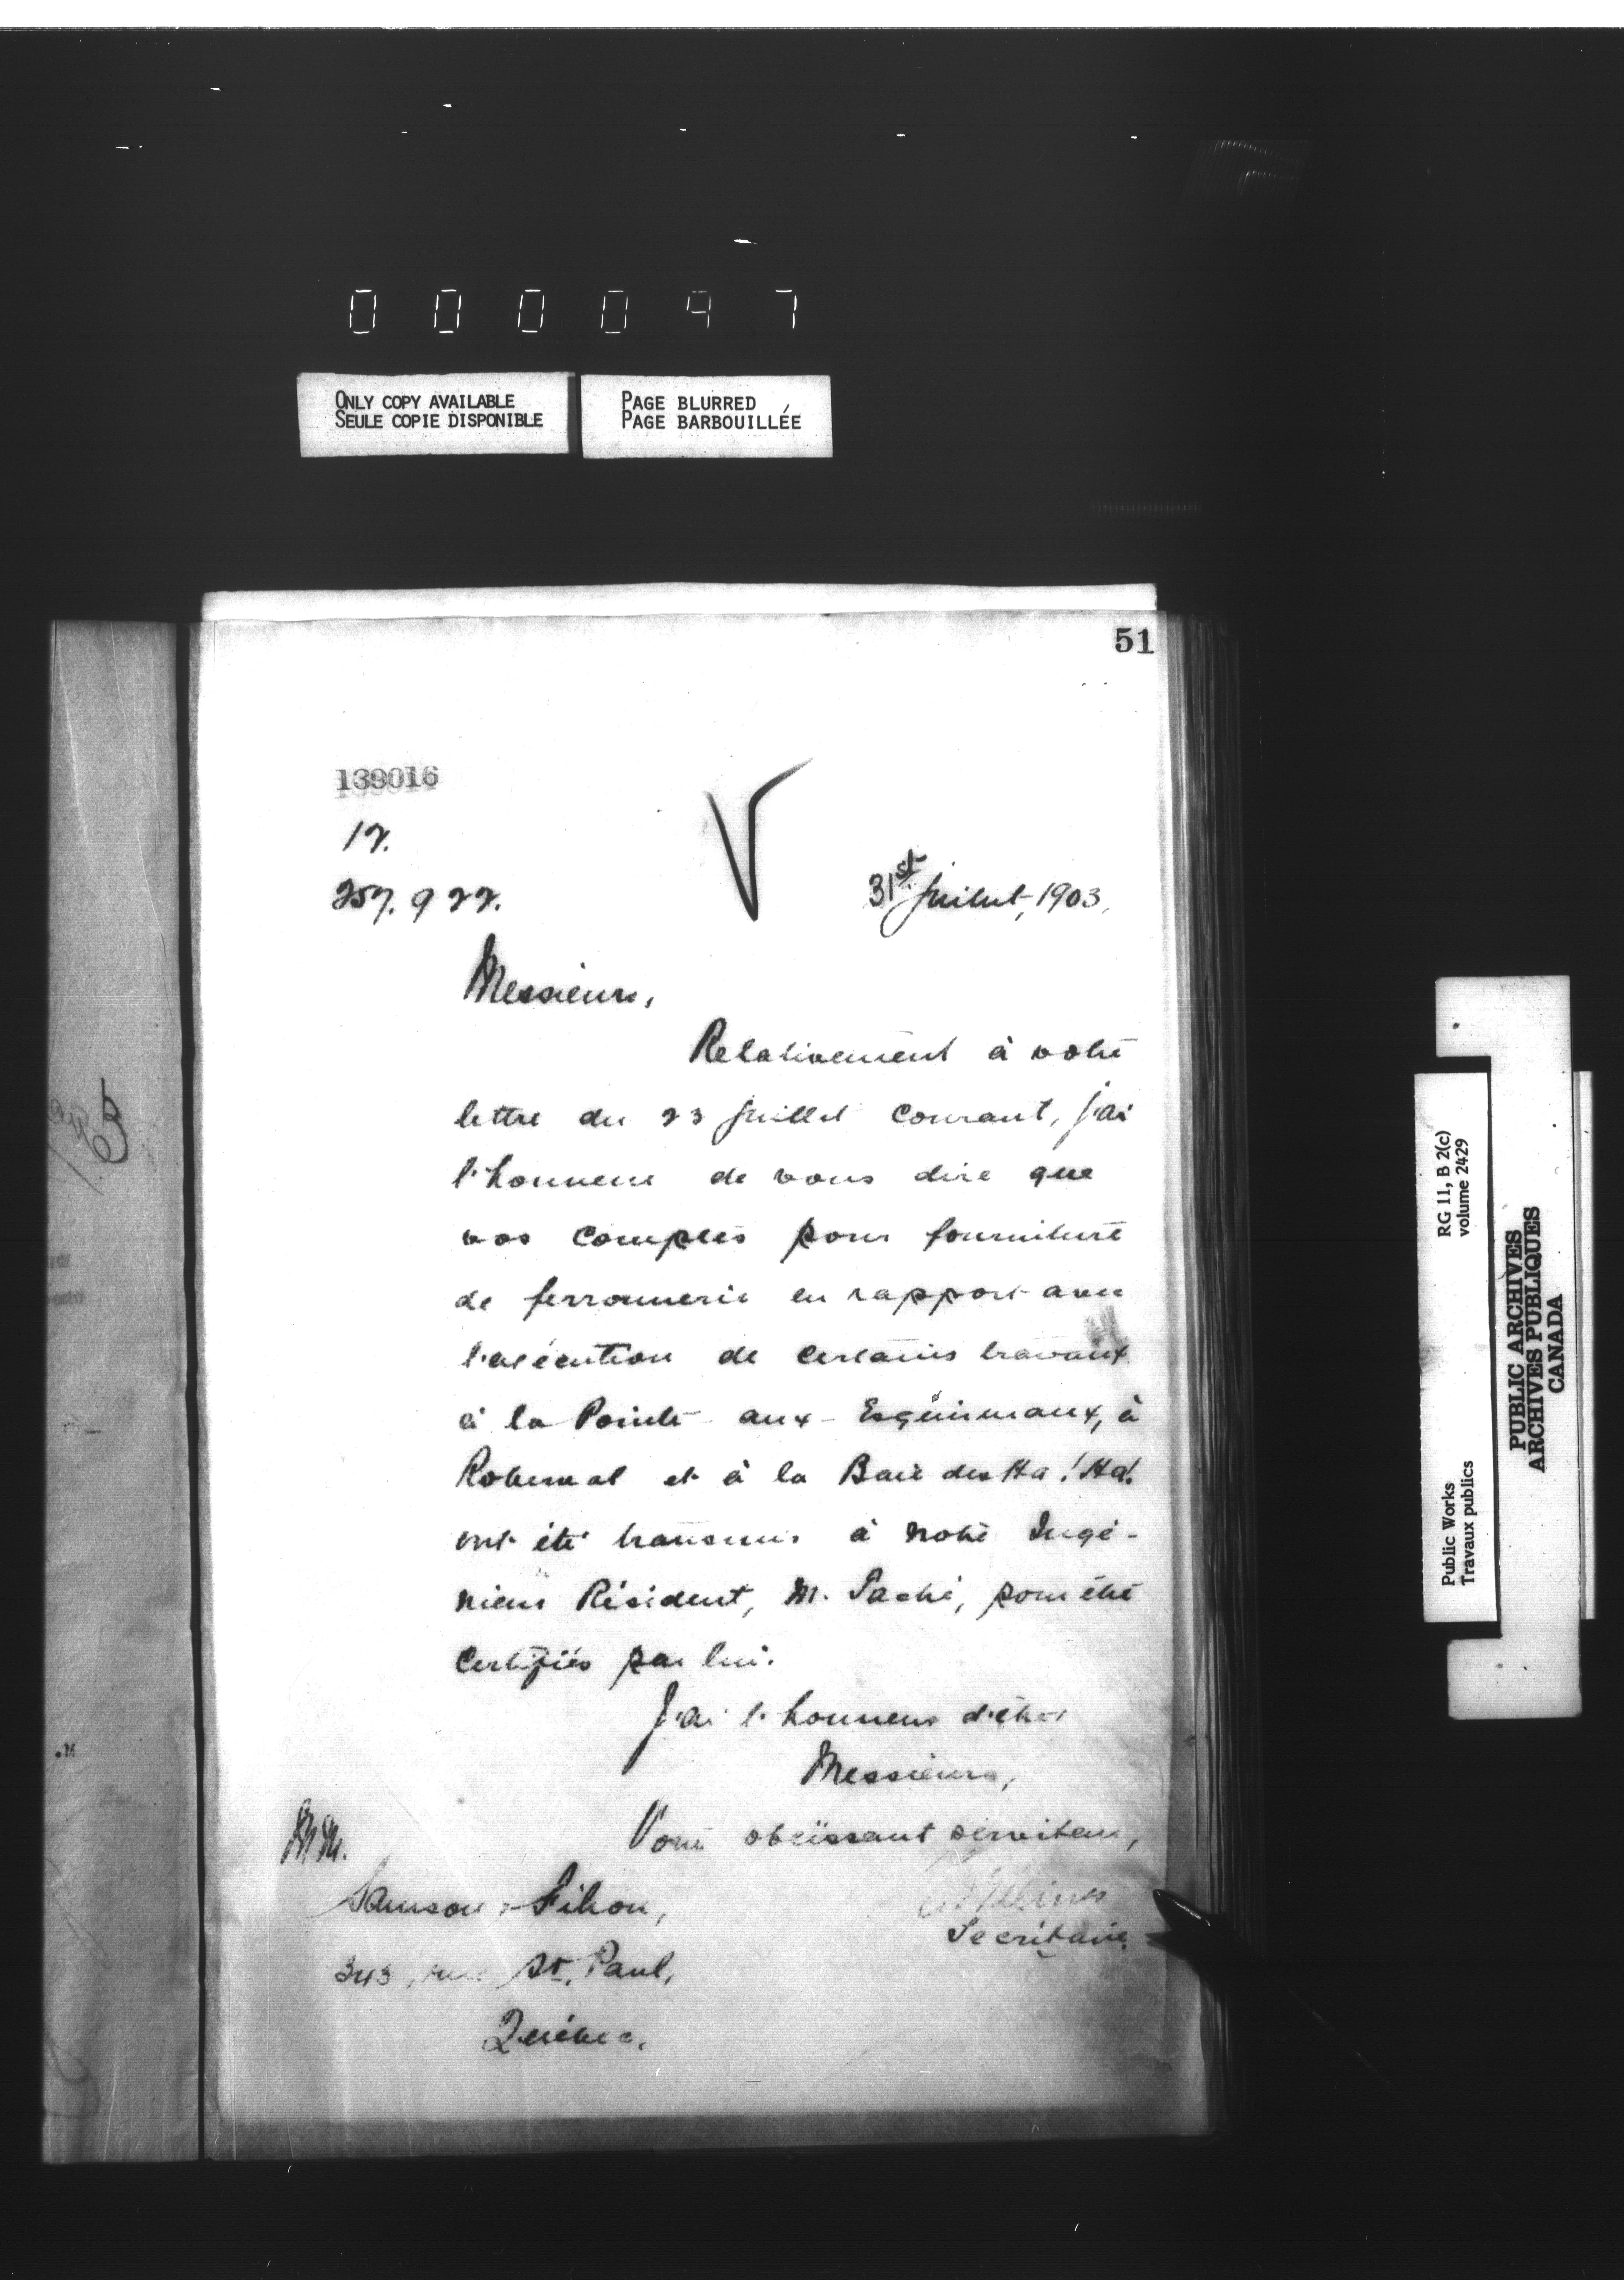 000097
ONLY COPY AVAILABLE
SEULE COPIE DISPONIBLE
PAGE BLURRED
PAGE BARBOUILLÉE
51
139016
257.922.
31st Juillet, 1903,
Messieurs,
Relativement à votre
lettre du 23 Juillet courant, j'ai
l'honneur de vous dire que
vos comptes pour fourniture
de ferronnerie en rapport avec
l'exécution de certains travaux
à la Pointe-aux-Esquimaux, à
Roberval et à la Baie des Ha! Ha!
ont été transmis à notre Ingé-
nieur Résident, M. Taché, pour être
certifiés par lui.
J'ai l'honneur d'être
Messieurs,
Votre obéissant serviteur,
Secrétaire
MM.
Samson & Filion,
343, rue St. Paul,
Québec.
Public Works
Travaux publics
RG 11, B 2(c)
volume 2429
PUBLIC ARCHIVES
ARCHIVES PUBLIQUES
CANADA